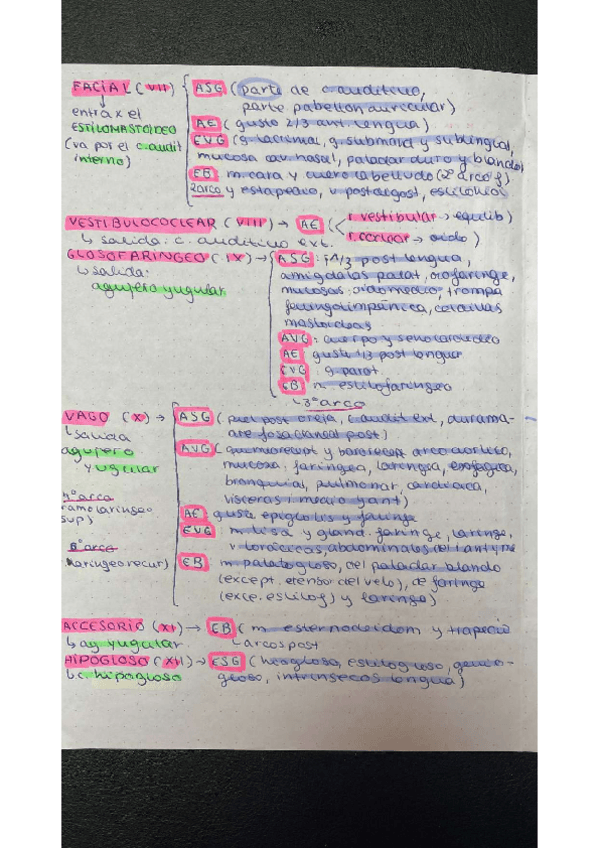 FACIAL (VII)
entra x el
ESTILOMASTOIDEO
(va por el c. audit
interno)
ASG (parte de c. auditivo,
parte pabellon auricular)
AE (gusto 2/3 ant. lengua)
EVG (g. lacrimal, g. submand y sublingual,
mucosa cav nasal, paladar duro y blando)
EB m. cara y cuero cabelludo (2º arco f)
2 arco y estapedio, v. postdigast, estilohioi
VESTIBULOCOCLEAR (VIII) → AE (
r. vestibular → equilib)
r. coclear → oido)
↳ salida: c. auditivo ext.
GLOSOFARINGEO (IX) →
↳ salida:
agujero yugular
ASG: 1/3 post lengua,
amigdalas palat, orofaringe,
mucosas: oido medio, trompa
faringotimpánica, celdillas
mastoideas
AVG: cuerpo y seno carotideo
AE gusto 1/3 post lengua
EVG g. parot.
EB m. estilofaringeo
↳ 3º arco
VAGO (X) →
↳ salida
agujero
yugular
4º arco
ramo laringeo
sup)
6º arco
laringeo recur)
ASG (piel post oreja, c. audit ext, durama-
dre fosa craneal post)
AVG (quimiorecept y barorecept arco aortico,
mucosa: faringea, laringea, esofagica,
bronquial, pulmonar, cardiaca,
visceras: medio y ant)
AE: gusto epiglotis y faringe
EVG: m. lisa y gland. faringe, laringe,
v. toracicas, abdominales del
EB m. palatogloso, del paladar blando
(except. etensor del velo), de faringe
(exce. estilof) y laringe)
ACCESORIO (XI) → EB (m. esternocleidom y trapecio
↳ ag yugular
↳ arcos post
HIPOGLOSO (XII) → ESG (hiogloso, estilogloso, genio-
↳ c. hipogloso
gloso, intrinsecos lengua)